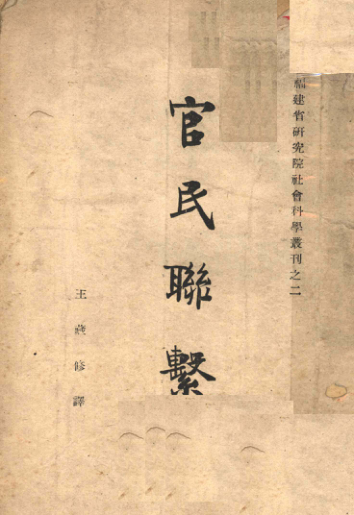 福建省研究院社會科學叢刊之二
官民聯繫
王 修譯